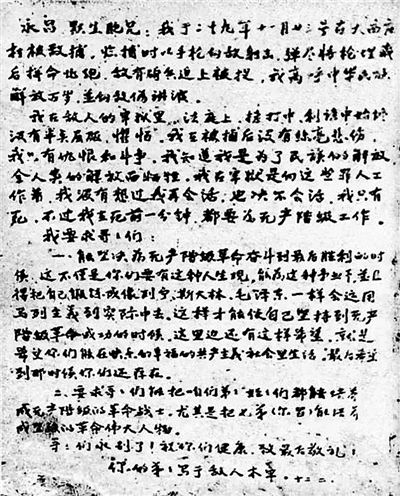 永昌 默生胞兄：我于二十九年十一月廿三号在大南庄
村被敌捕，临捕时以手枪向敌射击，弹尽将枪埋藏
后拼命也跑，敌有骑兵追上被捉，我高呼中华民族
解放万岁，並向敌伪讲演。
我在敌人的牢狱里、法庭上、拷打中、利诱中始终
没有半点屈服，惧怕，我至被捕后没有丝毫悲伤，
我只有仇恨和斗争，我知道我是为了民族的解放，
全人类的解放而牺牲，我在牢狱是向这些罪人工
作着，我没有想过我再会活，也决不会活，我只有
死，不过我在死前一分钟，都要为无产阶级工作。
我要求哥：们：
一、能坚决为无产阶级革命奋斗到最后胜利的时
候，这不仅是你们要有这种人生观，能为这种事业干，並且
得把自己锻炼成像列宁、斯大林、毛泽东一样会运用
马列主义到实际中去，这样才能使自己坚持到无产
阶级革命成功的时候，这里边还有这样希望，就是
希望你们能在快乐的幸福的共产主义社会里生活，最后希望
到那时候你们还存在。
二、要求哥：们能把咱们弟：姪：们都能培养
成无产阶级的革命战士，尤其是把兄弟（你哥）能培养
成坚强的革命伟大人物。
哥：们永别了！祝你们健康，致最后敬礼！
你的弟：写于敌人木牢。十二、二